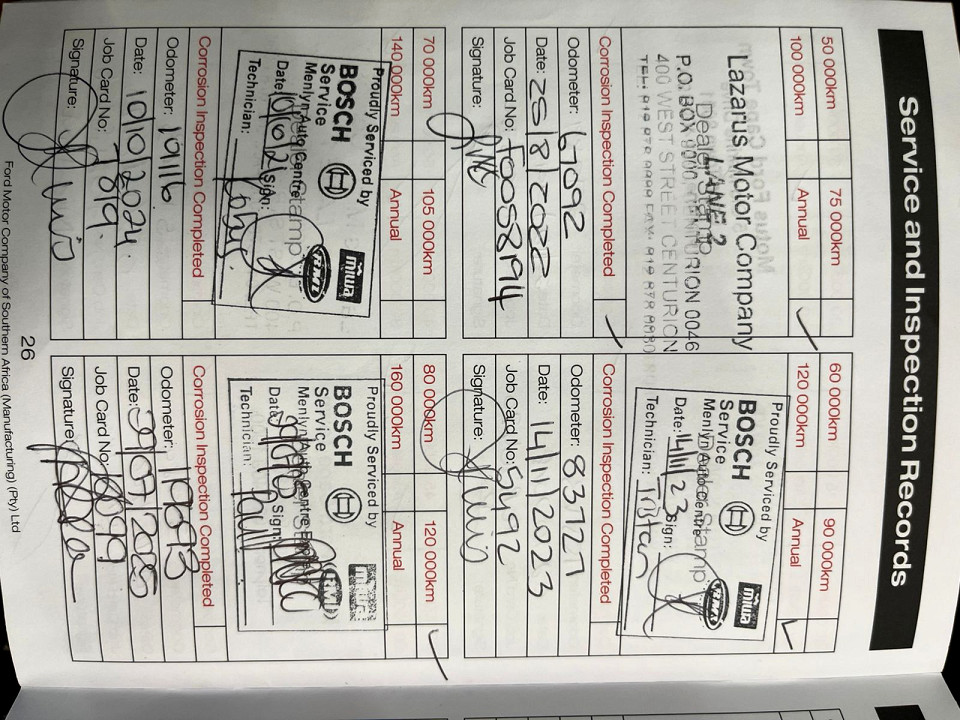 Service and Inspection Records
50 000km
75 000km
100 000km
Annual
Lazarus Motor Company
Dealer Stamp
LANE 2
P.O. BOX
CENTURION 0046
400 WEST STREET CENTURION
Corrosion Inspection Completed
Odometer: 67092
Date: 25/8/2022
Job Card No: f0058194
Signature:
60 000km
90 000km
120 000km
Annual
Proudly Serviced by
BOSCH
Service
Menlyn Auto Centre
Date: 14/11/23 Sign:
Technician: Tristan
miwa
RMI
Corrosion Inspection Completed
Odometer: 83727
Date: 14/11/2023
Job Card No: 5492
Signature:
70 000km
105 000km
140 000km
Annual
Proudly Serviced by
BOSCH
Service
Menlyn Auto Centre
Date: Sign:
Technician:
miwa
RMI
Corrosion Inspection Completed
Odometer: 101116
Date: 10/10/2024
Job Card No: 7819.
Signature:
80 000km
120 000km
160 000km
Annual
Proudly Serviced by
BOSCH
Service
Menlyn Auto Centre
Date Sign:
Technician: Paul
RMI
Corrosion Inspection Completed
Odometer:
Date:
Job Card No:
Signature:
26
Ford Motor Company of Southern Africa (Manufacturing) (Pty) Ltd